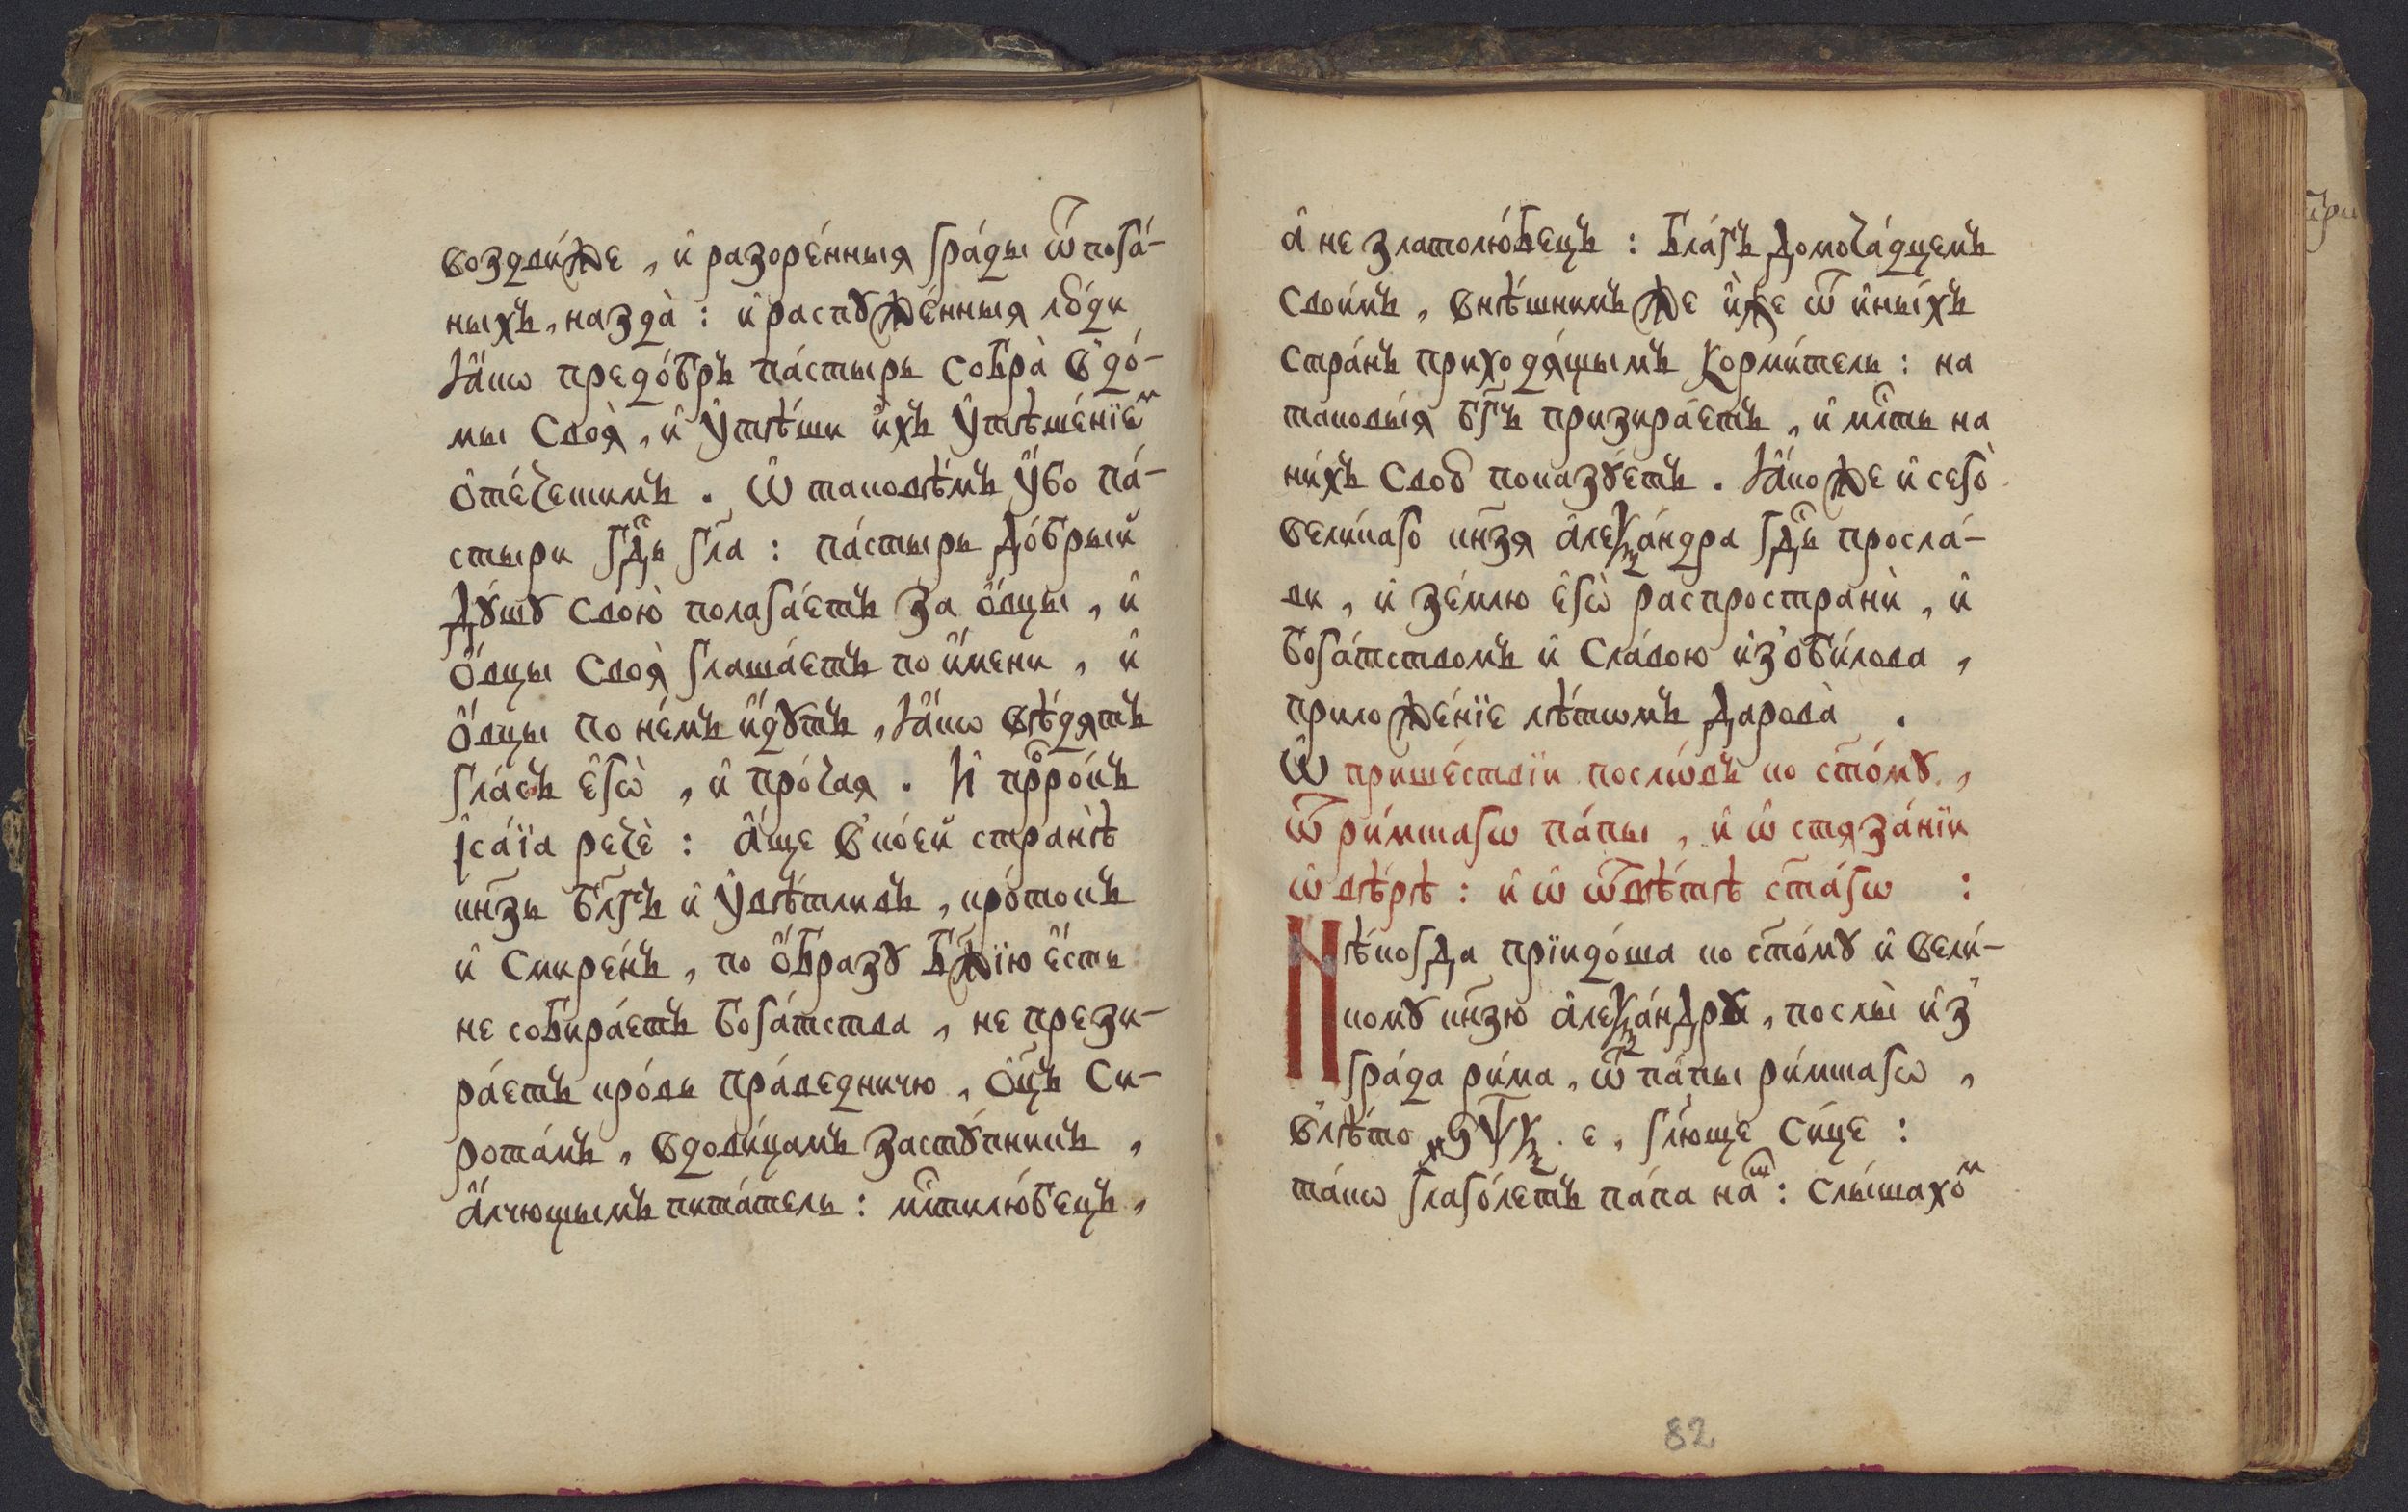 воздви́же , и҆ разоре́нныя гра́ды ѿ пога́-
ныхъ , назда̀ : и҆ распꙋже́нныя лю́ди
ꙗ҆́кѡ предо́бръ па́стырь собра̀ в̾до́-
мы своѧ̀ , и҆ ᲂу҆тѣ́ши и҆̀хъ ᲂу҆тѣше́нїеⷨ
ѻ҆те́ческимъ . Ѡ таковѣ́мъ ᲂу҆́бо па́-
стыри гдⷭ҇ь гл҃а : па́стырь до́брый
дꙋ́шꙋ свою̀ полага́етъ за ѻ҆́вцы , и҆
ѻ҆́вцы своѧ̀ глаша́етъ по и҆́мени , и҆
ѻ҆́вцы по не́мъ и҆́дꙋтъ , ꙗ҆́кѡ вѣ́дятъ
гла́съ є҆гѡ̀ , и҆ про́чая . И҆ прⷪ҇ро́къ
І҆са́їа речѐ : А҆́ще в̾ко́ей странѣ̀
кн҃зь бл҃гъ и҆ ᲂу҆вѣ́тливъ , кро́токъ
и҆ смире́нъ , по ѻ҆́бразꙋ бж҃їю є҆́сть
не собира́етъ бога́тства , не прези-
ра́етъ кро́вь пра́ведничю , ѻ҆ц҃ъ си-
рота́мъ , вдови́цамъ застꙋ́пникъ ,
а҆́лчющымъ пита́тель : млⷭ҇тилю́бецъ ,
а҆ не златолю́бецъ : бла́гъ домоча́дцемъ
свои́мъ , внѣ́шнимъ же и҆̀же ѿ и҆ны́хъ
стра́нъ приходя́щымъ корми́тель : на
таковы́я бг҃ъ призира́етъ , и҆ млⷭ҇ть на
ни́хъ свою̀ показꙋ́етъ . ꙗ҆́коже и҆ сего̀
вели́каго кн҃зя а҆леѯа́ндра гдⷭ҇ь просла́-
ви , и҆ зе́млю є҆гѡ̀ распространѝ , и҆
бога́тствомъ и҆ сла́вою и҆з̾ѻби́лова ,
приложе́нїе лѣ́тѡмъ дарова̀ .
Ѡ҆ прише́ствїи послѡ́въ ко ст҃о́мꙋ ,
ѿ ри́мскагѡ па́пы , и҆ ѡ҆ стяза́нїи
ѡ҆ вѣ́рѣ : и҆ ѡ҆ ѿвѣ́тѣ ст҃а́гѡ :
Нѣ́когда прїидо́ша ко ст҃о́мꙋ и҆ вели́-
комꙋ кн҃зю а҆леѯа́ндрꙋ , послы̀ и҆з̾
гра́да ри́ма , ѿ па́пы ри́мскагѡ ,
в̾лѣ́то ҂ѕѱѯ . е , гл҃юще си́це :
та́кѡ глаго́летъ па́па на́шⷲ : слы́шахоⷨ
82